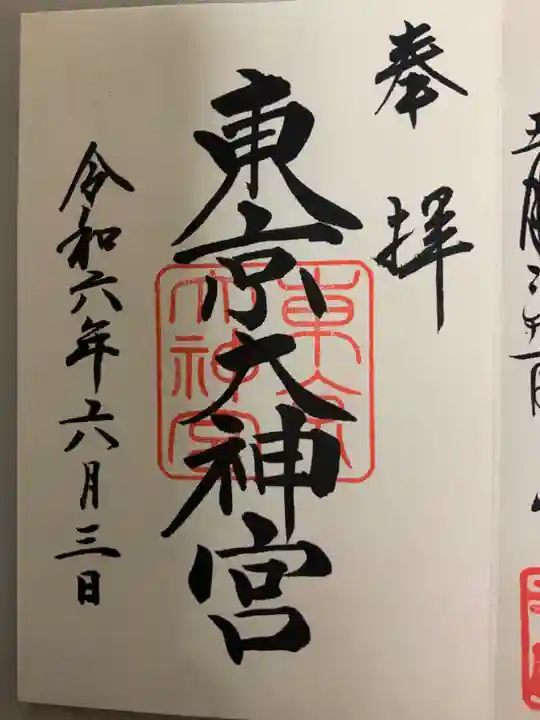 奉拝
東京大神宮
東京
大神宮
令和六年六月三日